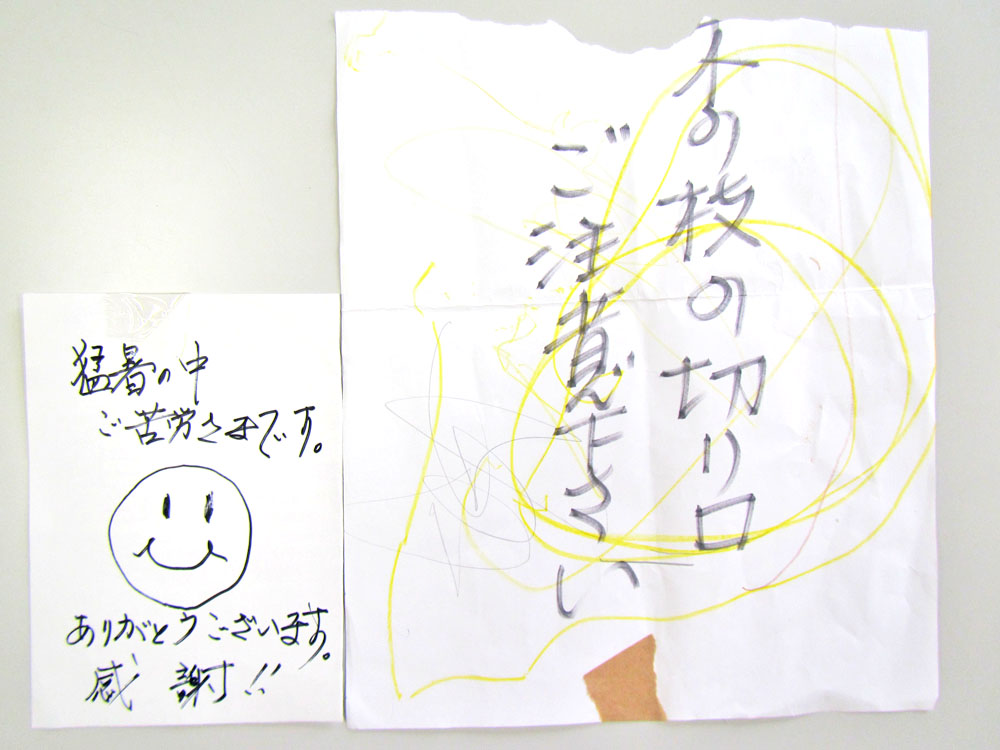 猛暑の中
ご苦労さまです。
ありがとうございます。
感謝!!
木の枝の切り口
ご注意下さい